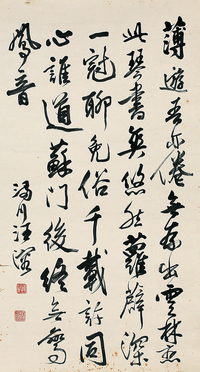 薄遊吾亦倦無出雲林
此琴書悠然蘿薜深
一冠聊免俗千載許同
心誰道蘇門後終無鸞
鳳音
川汪